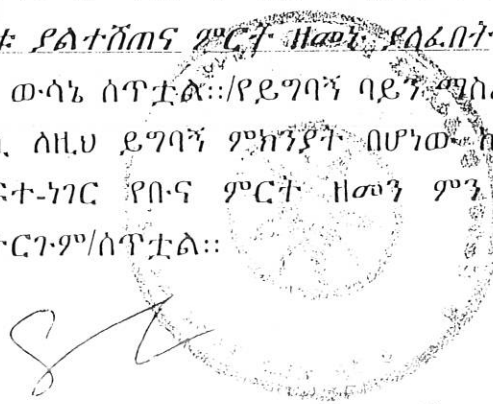 ያልተሸጠና ምርት ዘመኑ ያለፈበት
ውሳኔ ሰጥቷል፡፡/የይግባኝ ባይን
ለዚህ ይግባኝ ምክንያት በሆነው
የቡና ምርት ዘመን ምን
ሰጥቷል፡፡